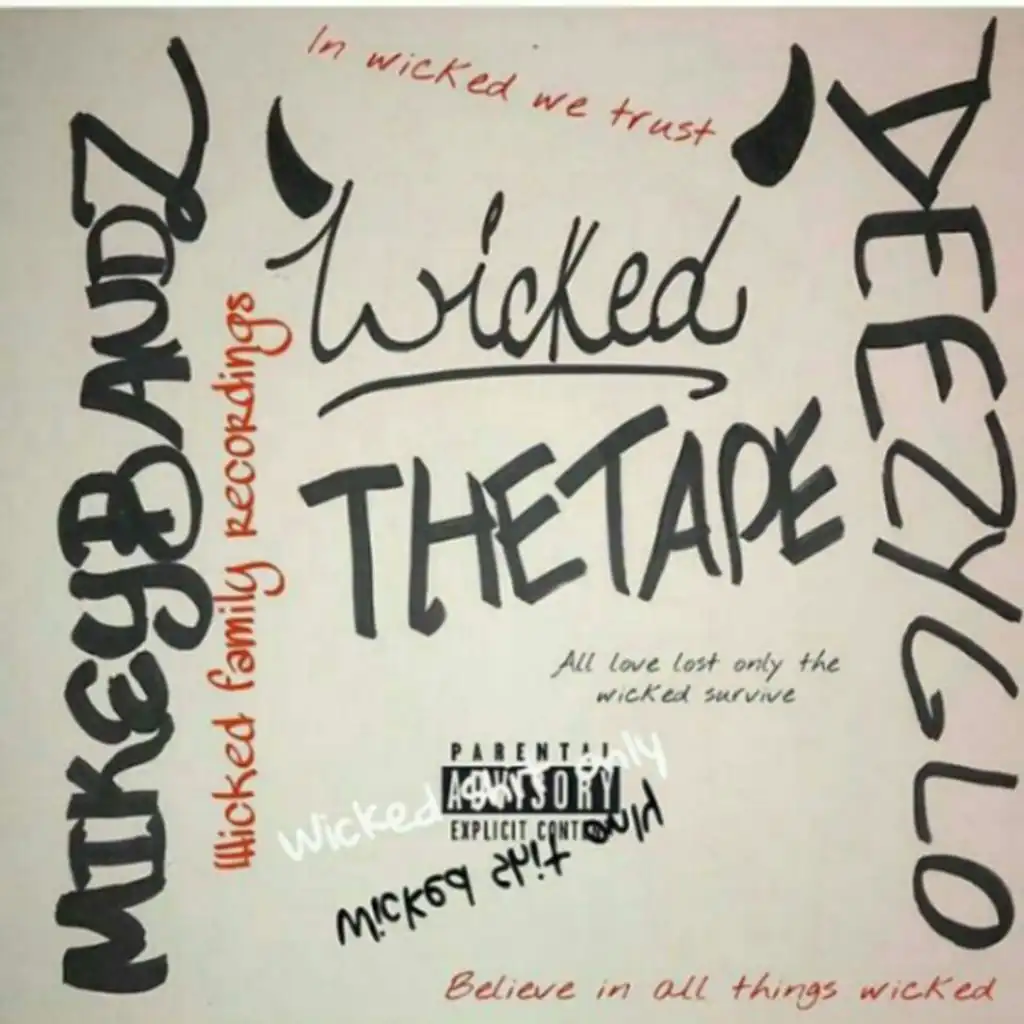 In wicked we trust
MIKEYBANDZ
Wicked family recordings
Wicked
THE TAPE
DEEZYLLO
All love lost only the
wicked survive
PARENTAL
ADVISORY
EXPLICIT CONTENT
Wicked shit only
Wicked shit only
Believe in all things wicked